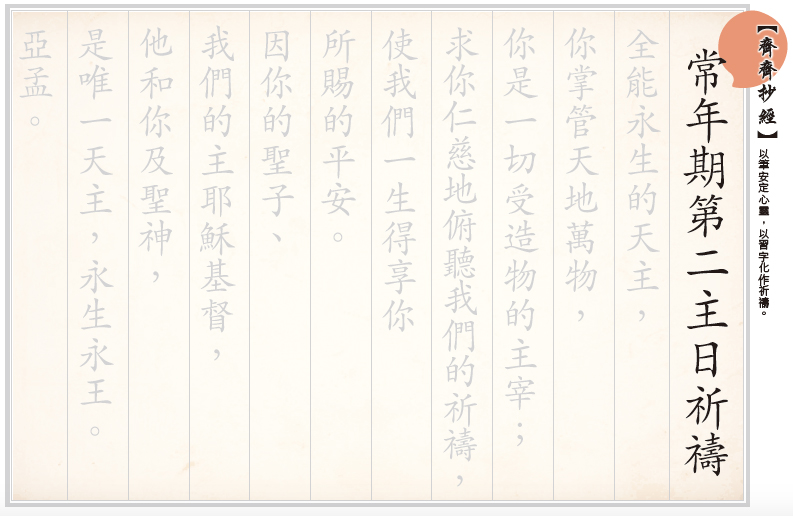 【齊齊抄經】以筆安定心靈，以習字化作祈禱。
常年期第二主日祈禱
全能永生的天主，
你掌管天地萬物，
你是一切受造物的主宰；
求你仁慈地俯聽我們的祈禱，
使我們一生得享你
所賜的平安。
因你的聖子、
我們的主耶穌基督，
他和你及聖神，
是唯一天主，永生永王。
亞孟。